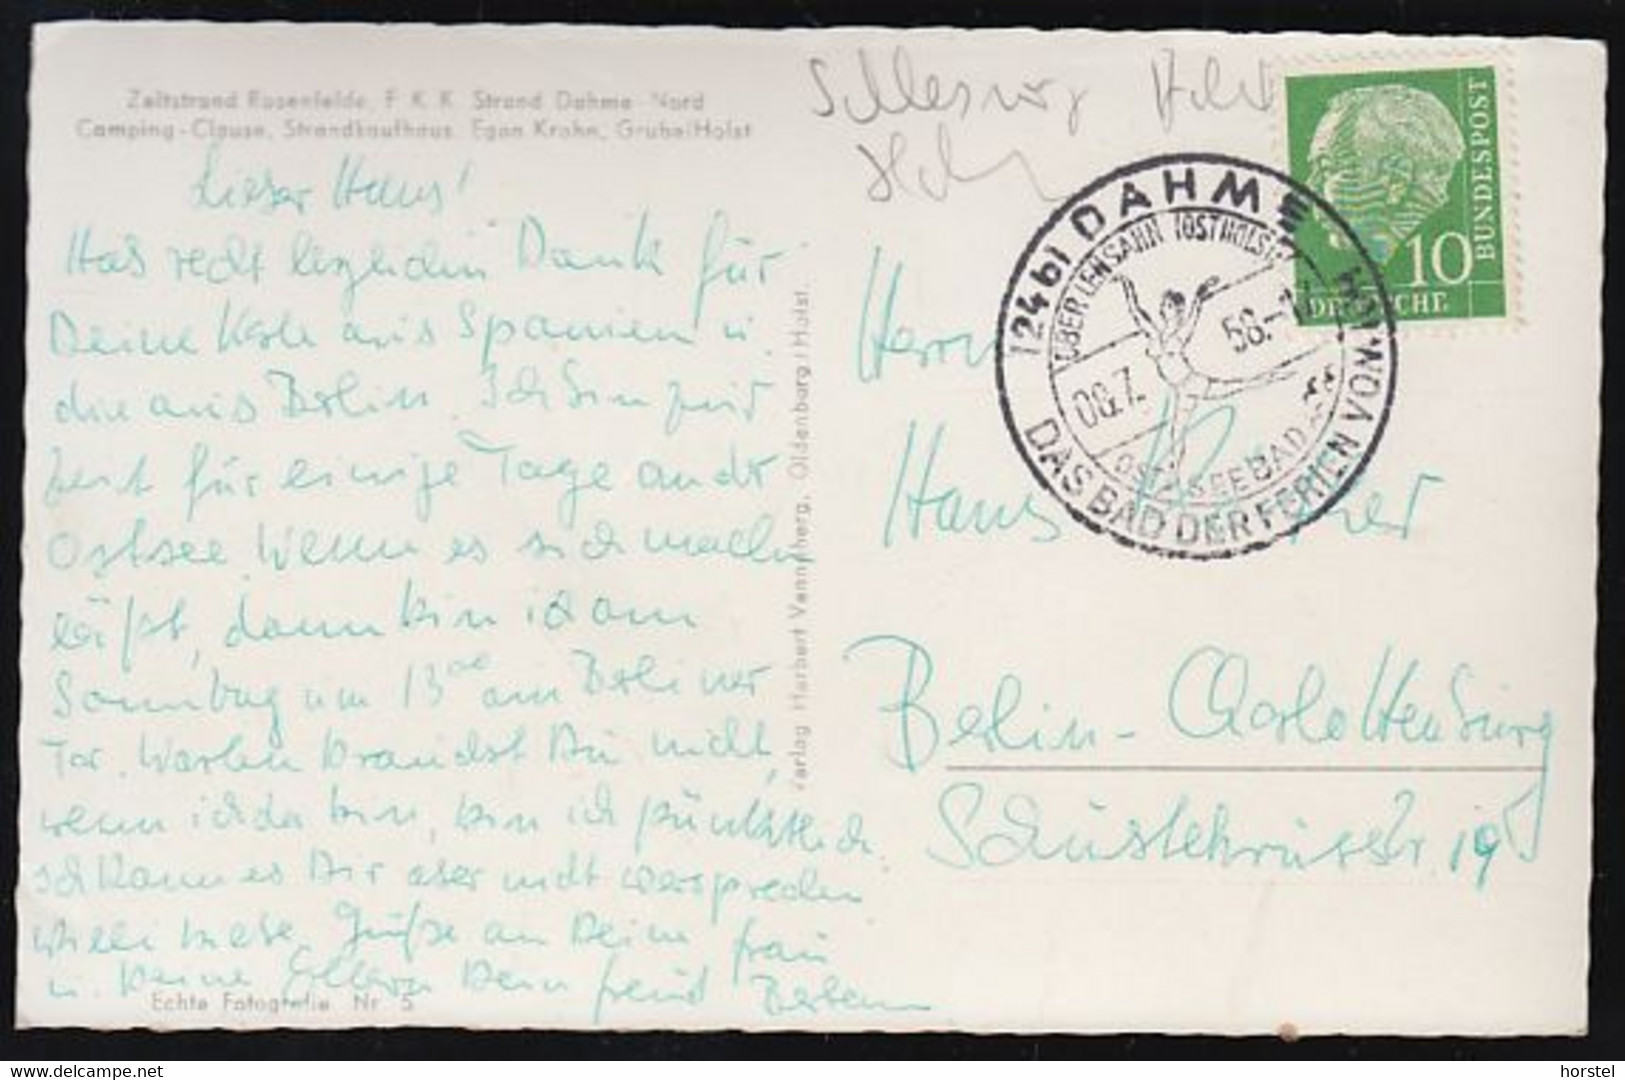 Zeltstrand Rosenfelde, F. K. K. Strand Dahme-Nord
Camping-Clause, Strandkaufhaus Egon Krohn, Grube/Holst
Lieber Hans!
Hab recht herzlichen Dank für
Deine Karte aus Spanien u.
die aus Berlin. Ich bin zur
Zeit für einige Tage an der
Ostsee. Wenn es sich machen
läßt, dann bin ich am
Sonntag um 13⁰⁰ am Berliner
Tor. Warten brauchst Du nicht,
wenn ich da bin, bin ich pünktlich.
Ich kann es Dir aber nicht versprechen
Grüße an Deine Frau
u. Deine Eltern Dein Freund
Echte Fotografie Nr 5
Verlag Herbert Vennberg, Oldenburg/Holst.
Schleswig
(24b) DAHME
ÜBER LENSAHN (OSTHOLST)
58.
OSTSEEBAD
DAS BAD DER FERIEN VON
10
DEUTSCHE
BUNDESPOST
Herrn
Hans
Berlin-Charlottenburg
Schustehrusstr. 19
horstel
delcampe.net